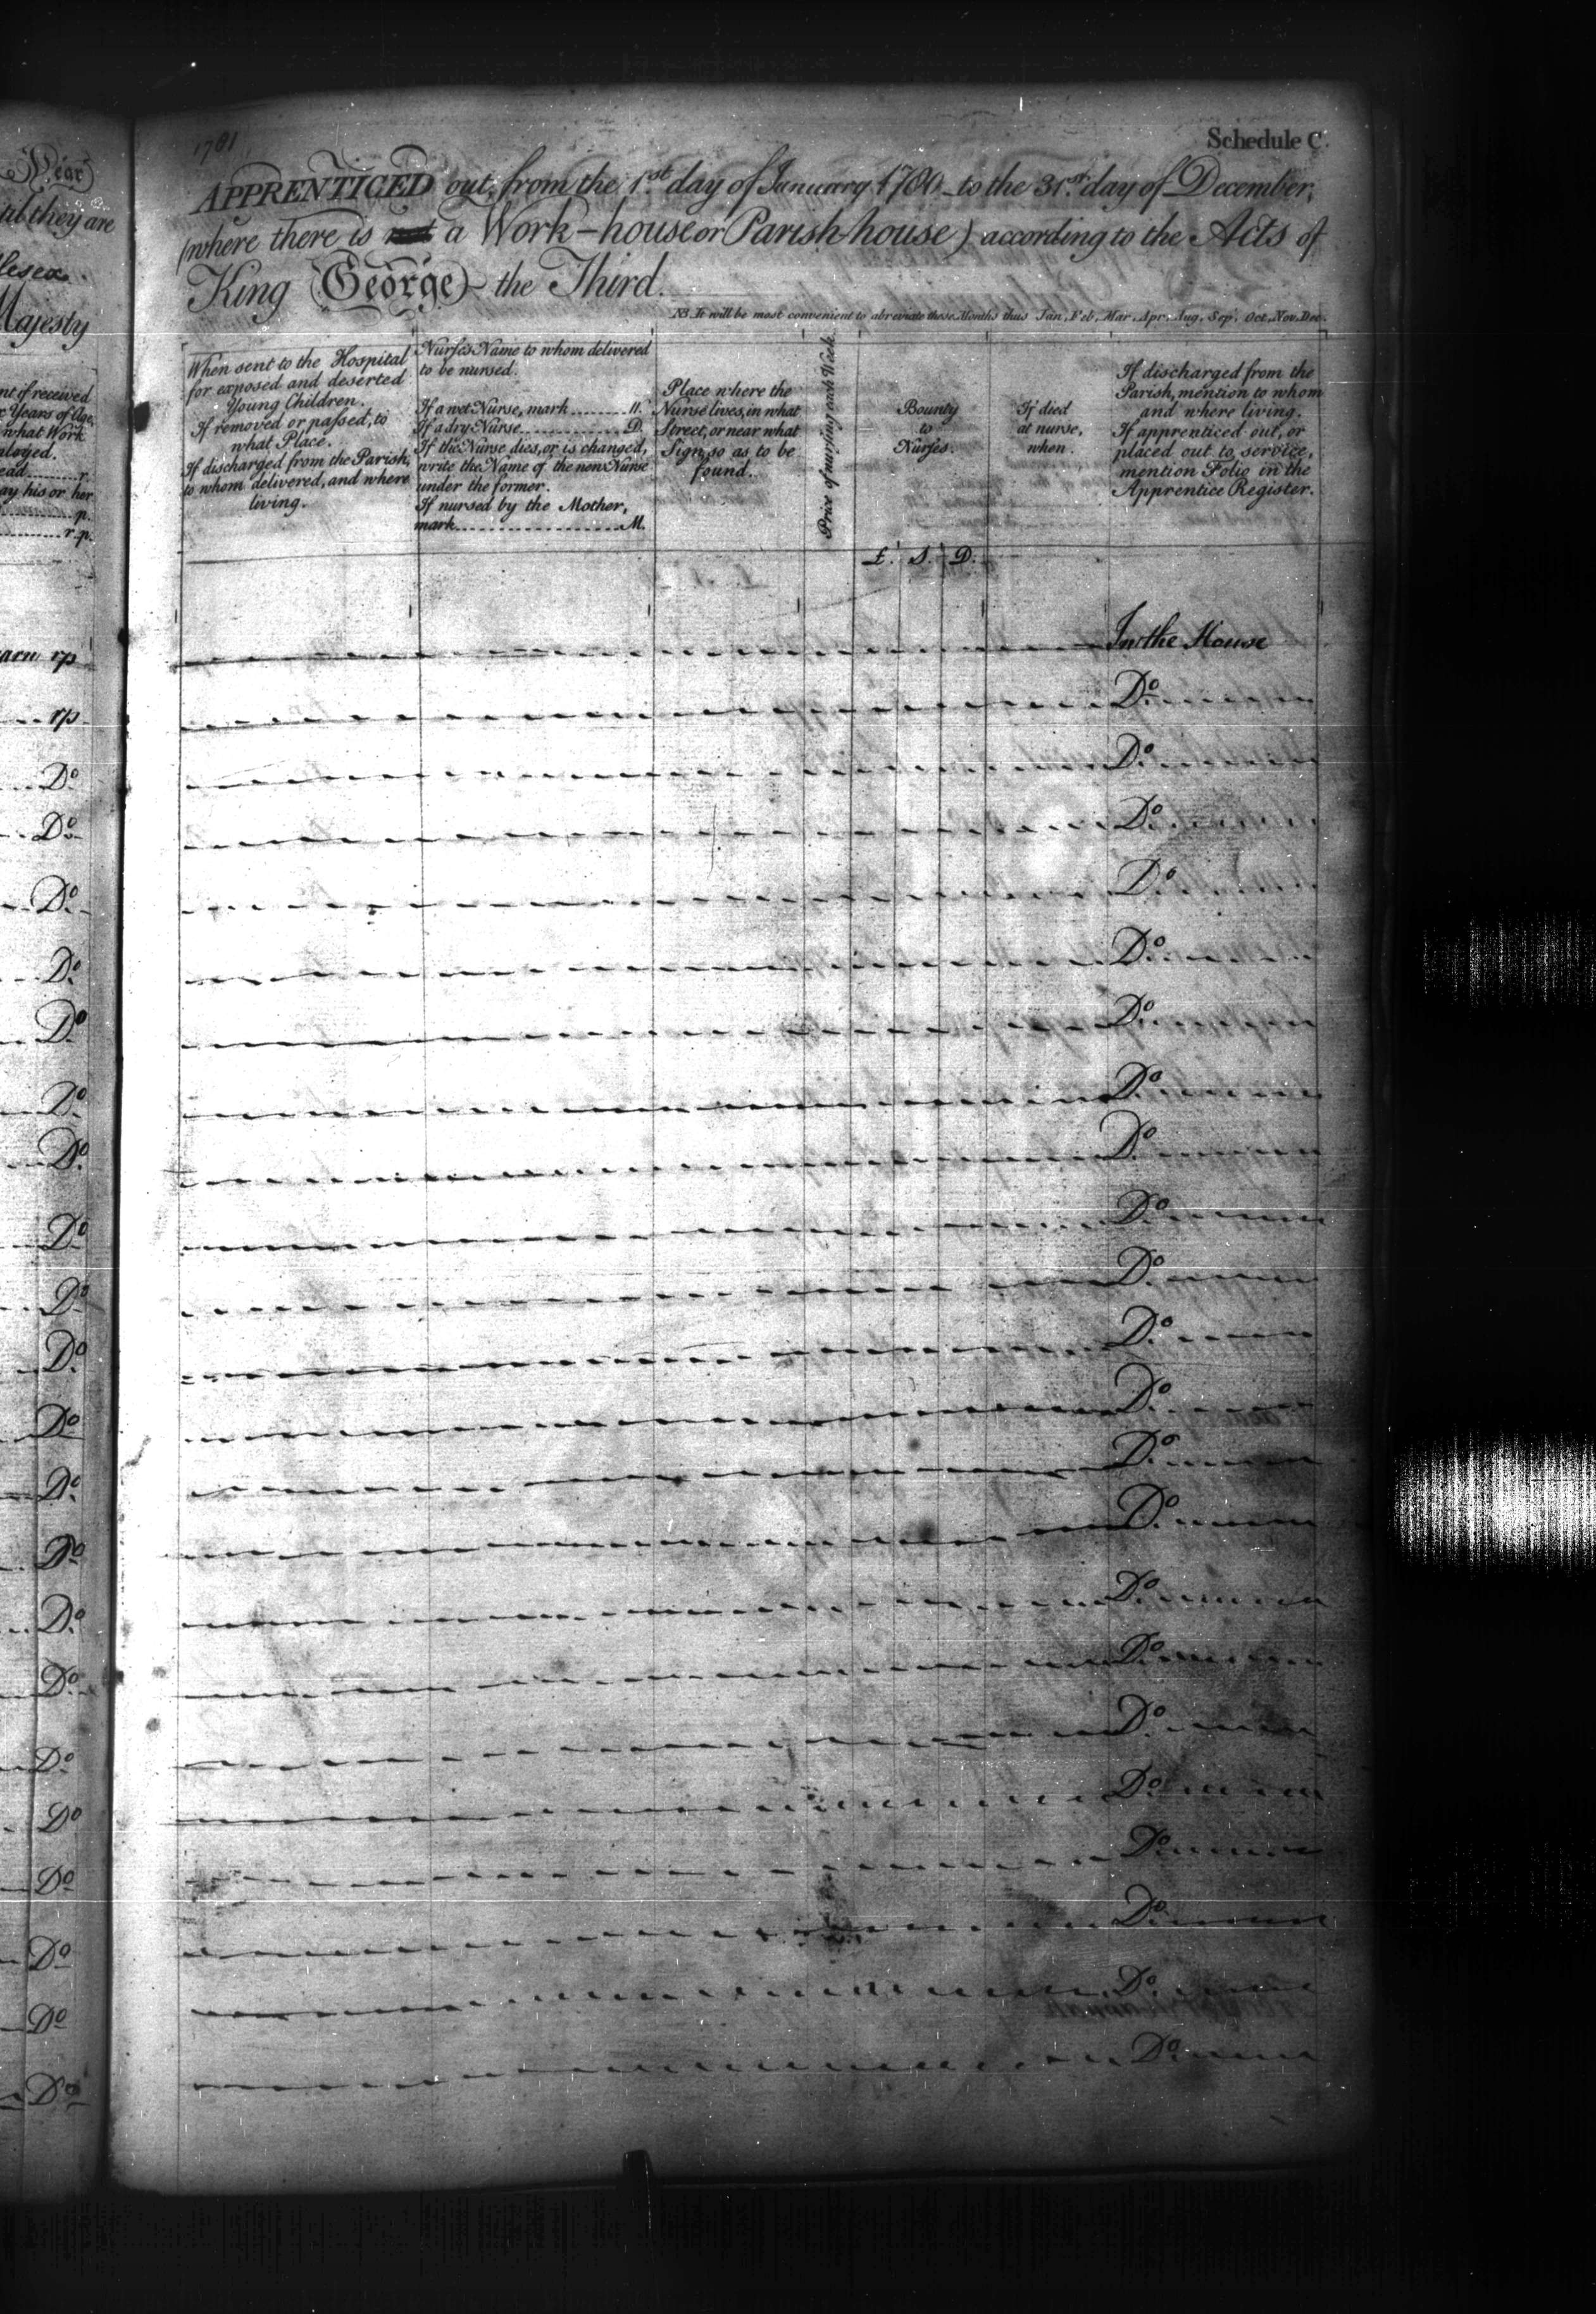 Year
til they are
lesex.
Majesty
nt if received
x Years of Age,
what Work
loyed.
ead........r.
ay his or her
............p.
........r.p.
rp
rp
Do
Do
Do
Do
Do
Do
Do
Do
Do
Do
Do
Do
Do
Do
Do
Do
Do
Do
Do
Do
Do
1781
Schedule C.
APPRENTICED out, from the 1st day of January 1780 to the 31st day of December,
(where there is not a Work-house or Parish-house) according to the Acts of
King George the Third.
NB. It will be most convenient to abreviate these Months thus Jan, Feb, Mar, Apr, Aug, Sep, Oct, Nov, Dec.
When sent to the Hospital
for exposed and deserted
Young Children.
If removed or passed, to
what Place.
If discharged from the Parish,
to whom delivered, and where
living.
Nurses Name to whom delivered
to be nursed.
If a wet Nurse, mark..........W.
If a dry Nurse..................D.
If the Nurse dies, or is changed,
write the Name of the new Nurse
under the former.
If nursed by the Mother,
mark.........................M.
Place where the
Nurse lives, in what
Street, or near what
Sign, so as to be
found.
Price of nursing each Week.
Bounty
to
Nurses.
£. S. D.
If died
at nurse,
when.
If discharged from the
Parish, mention to whom
and where living.
If apprenticed out, or
placed out to service,
mention Folio in the
Apprentice Register.
In the House
Do
Do
Do
Do
Do
Do
Do
Do
Do
Do
Do
Do
Do
Do
Do
Do
Do
Do
Do
Do
Do
Do